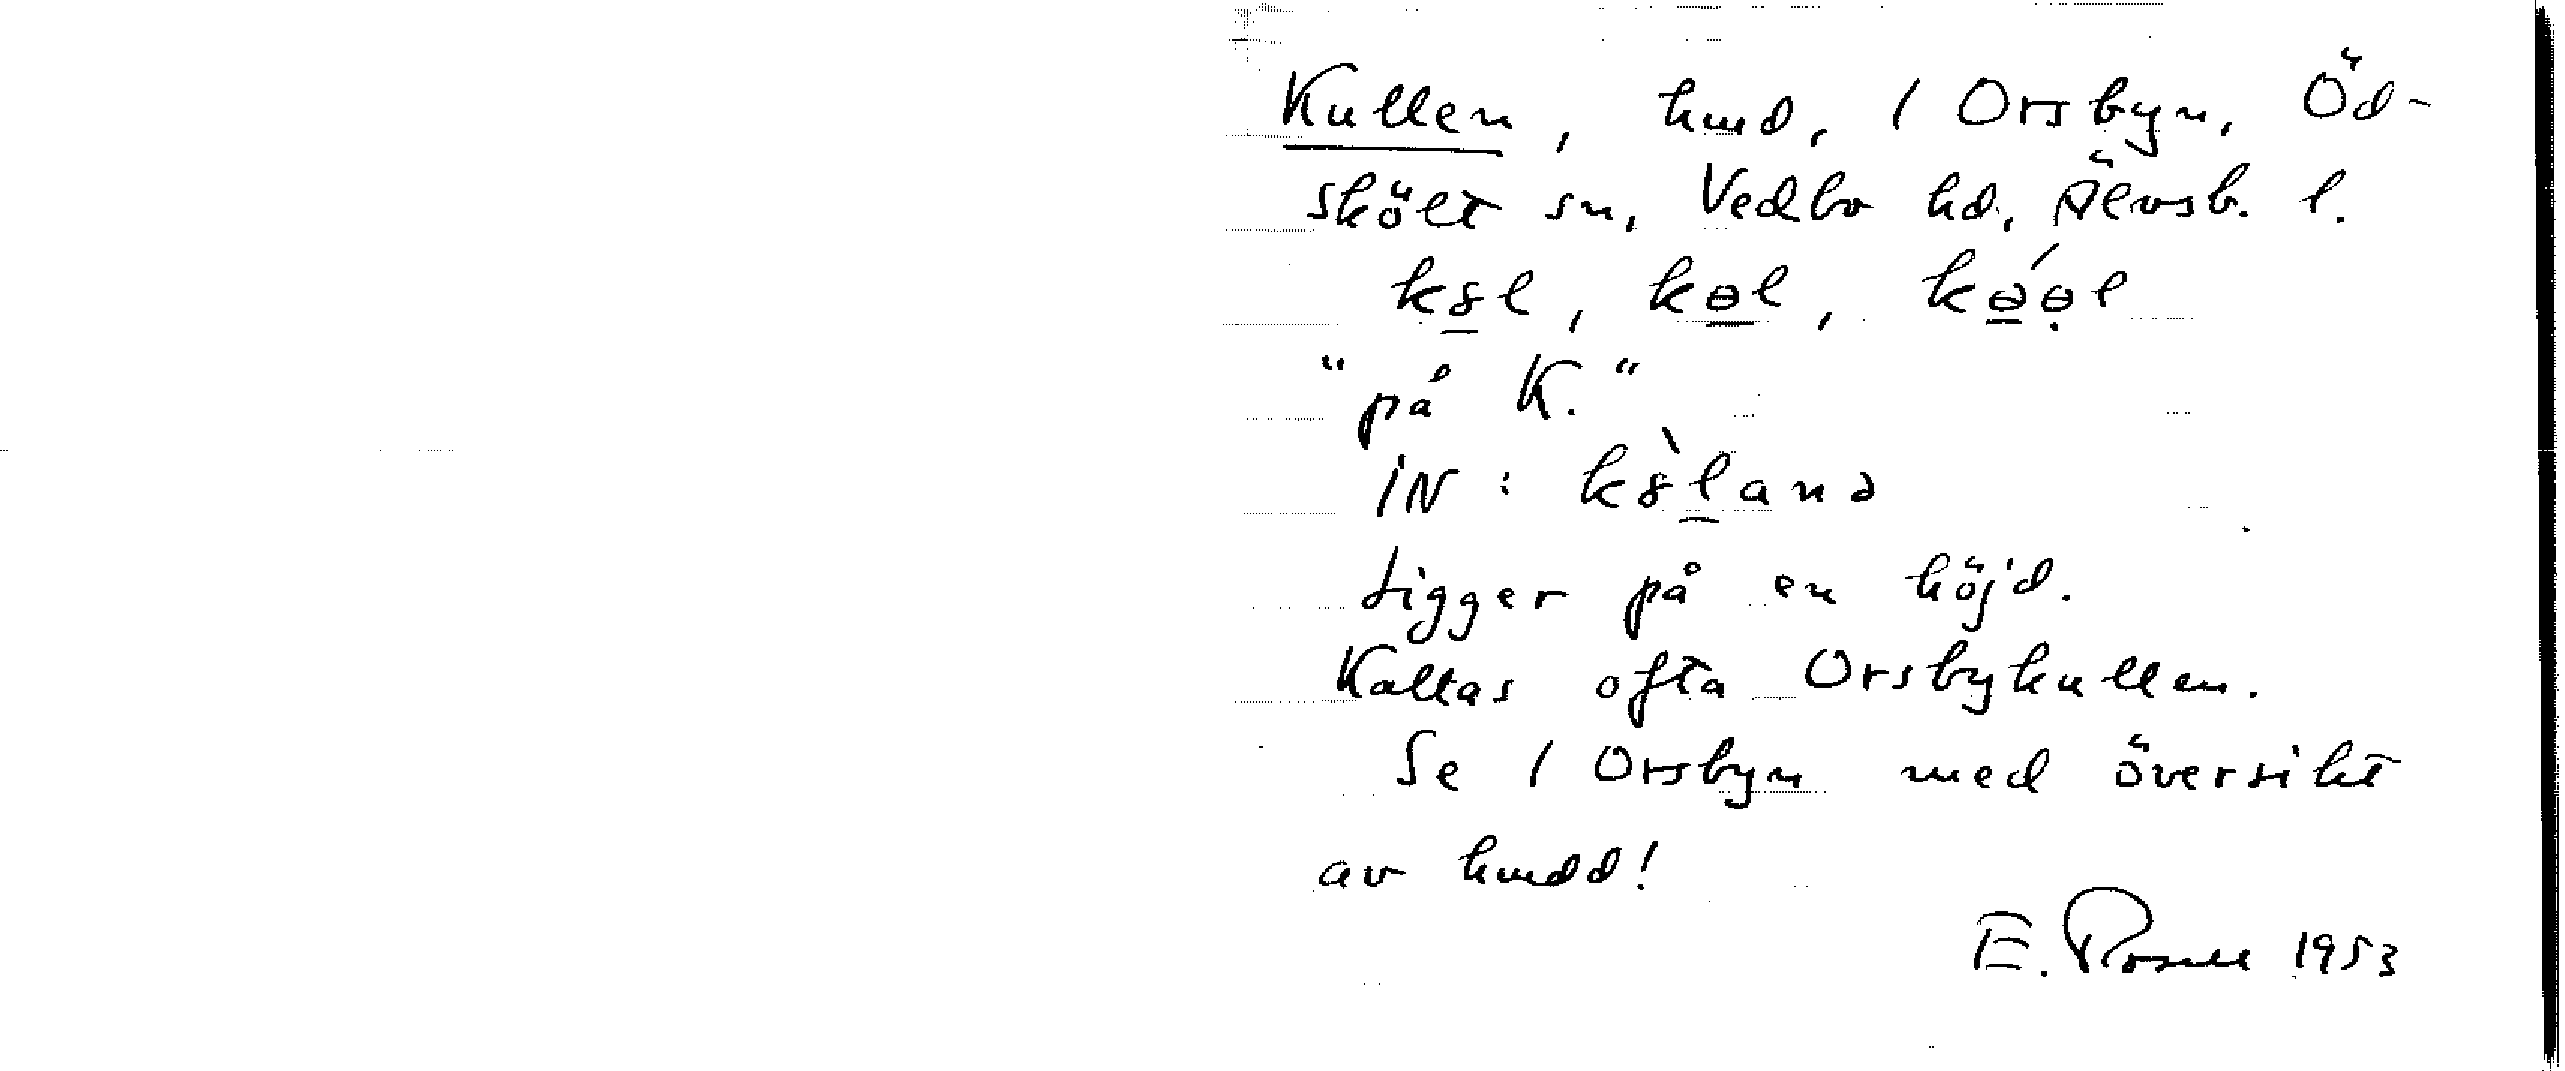 Kullen, hmd, 1 Orsbyn, Öd-
skölt sn, Vedbo hd, Älvsb. l.
k8l, kɵl, kǝ́ɵl
"på K."
iN: k8̀lanǝ
Ligger på en höjd.
Kallas ofta Orsbykullen.
Se 1 Orsbyn med översikt
av hmdd!
E. Rosell 1953